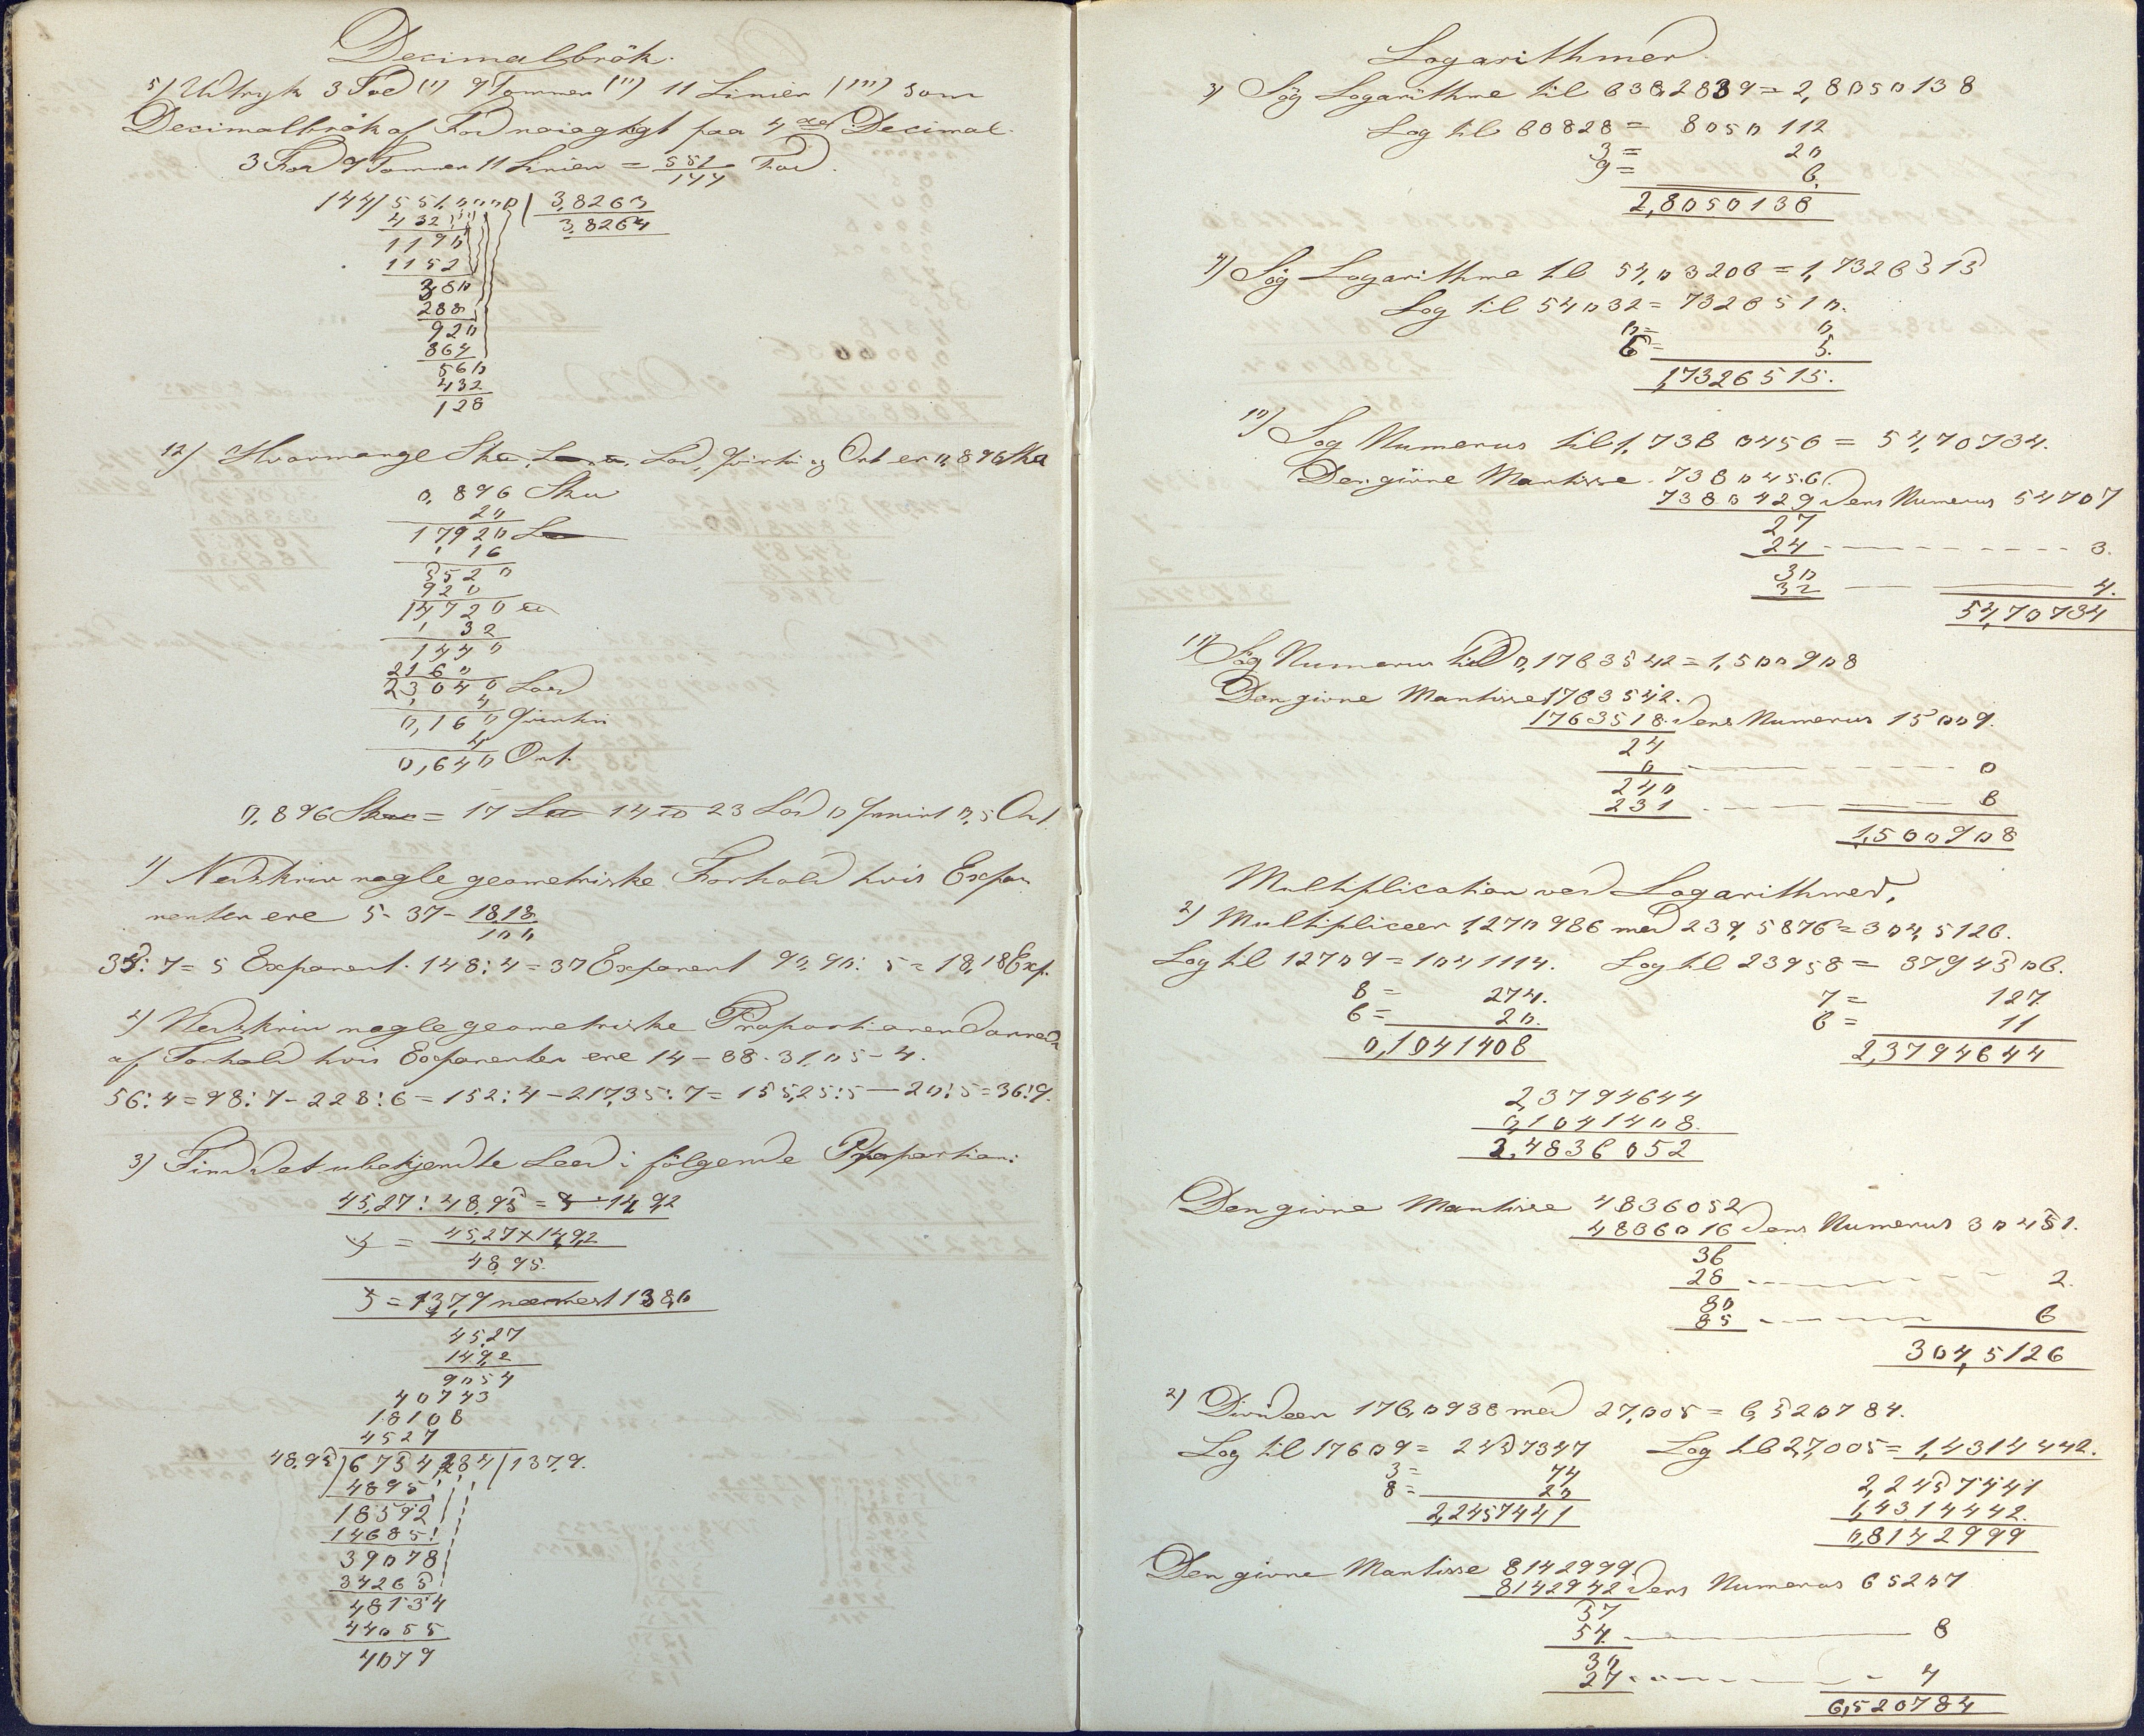 Decimalbrök.
5) Udtryk 3 Fod (') 9 Tommer (") 11 Linier (''') som
Decimalbrök af Fod nöiagtigt paa 4de Decimal.
3 Fod 9 Tommer 11 Linier = 551/144 Fod.
144/551,0000/3,8263
432 3,8264
1190
1152
380
288
920
864
560
432
128
12) Hvormange Lod, Qvintin og Ort er 0,896
0,896
20
17920
16
3520
920
14720
32
1440
2160
23040 Lod
4
0,160 Qvintin
4
0,640 Ort.
0,896 = 17 14 23 Lod 0 Qvint 0,5 Ort.
1) Nedskriv nogle geometriske Forhold hvis Expo-
nenter ere 5 - 37 - 18,18/100
35:7 = 5 Exponent. 148:4 = 37 Exponent 90,90: 5 = 18,18 Exp.
2) Nedskriv nogle geometriske Proportioner dannede
af Forhold hvis Exponenter ere 14 - 38 - 31,05 - 4.
56:4 = 98:7 - 228:6 = 152:4 - 217,35:7 = 155,25:5 — 20:5 = 36:9.
3) Find det ubekjendte Leed i følgende Proportion:
45,27 : 48,95 = : 14,92
= 45,27 × 149,2
48,95
= 137,9 nærmest 138,0
45,27
149,2
9054
40743
18108
4527
48,95/6754284/137,9.
4895
18592
14685
39078
34265
48134
44055
4079
Logarithmer.
3) Søg Logarithme til 638,2839 = 2,8050138
Log til 63828 = 8050112
3 = 20
9 = 6.
2,8050138
4) Søg Logarithme til 54,03206 = 1,7326515
Log til 54032 = 7326510.
0 = 0
6 = 5.
1,7326515.
10) Søg Numerus til 1,7380456 = 54,70734.
Den givne Mantisse 7380456.
7380429 dens Numerus 54707
27
24 - - - - - - - - 3.
30
32 — — 4.
54,70734
11) Søg Numerus til 0,1763542 = 1,500908
Den givne Mantisse 1763542.
1763518 dens Numerus 15009.
24
0 - - - - - - - 0
240
231 - - - — 8
1,500908
Multiplication ved Logarithmer,
2) Multiplicer 1,270986 med 239,5876 = 304,5126.
Log til 12709 = 1041114. Log til 23958 = 3794506.
8 = 274. 7 = 127.
6 = 20. 6 = 11
0,1041408 2,3794644
2,3794644
0,1041408.
2,4836052
Den givne Mantisse 4836052
4836016 dens Numerus 30451.
36
28 - - - - - - - 2.
80
85 - - - - — 6
304,5126
2) Divideer 176,0938 med 27,005 = 6,520784.
Log til 17609 = 2457347 Log til 27,005 = 1,4314442.
3 = 74 2,2457441
8 = 20 1,4314442.
2,2457441 0,8142999
Den givne Mantisse 8142999.
8142942 dens Numerus 65207
57
54. ———— 8
30
27 - - - - - - 4
6,520784